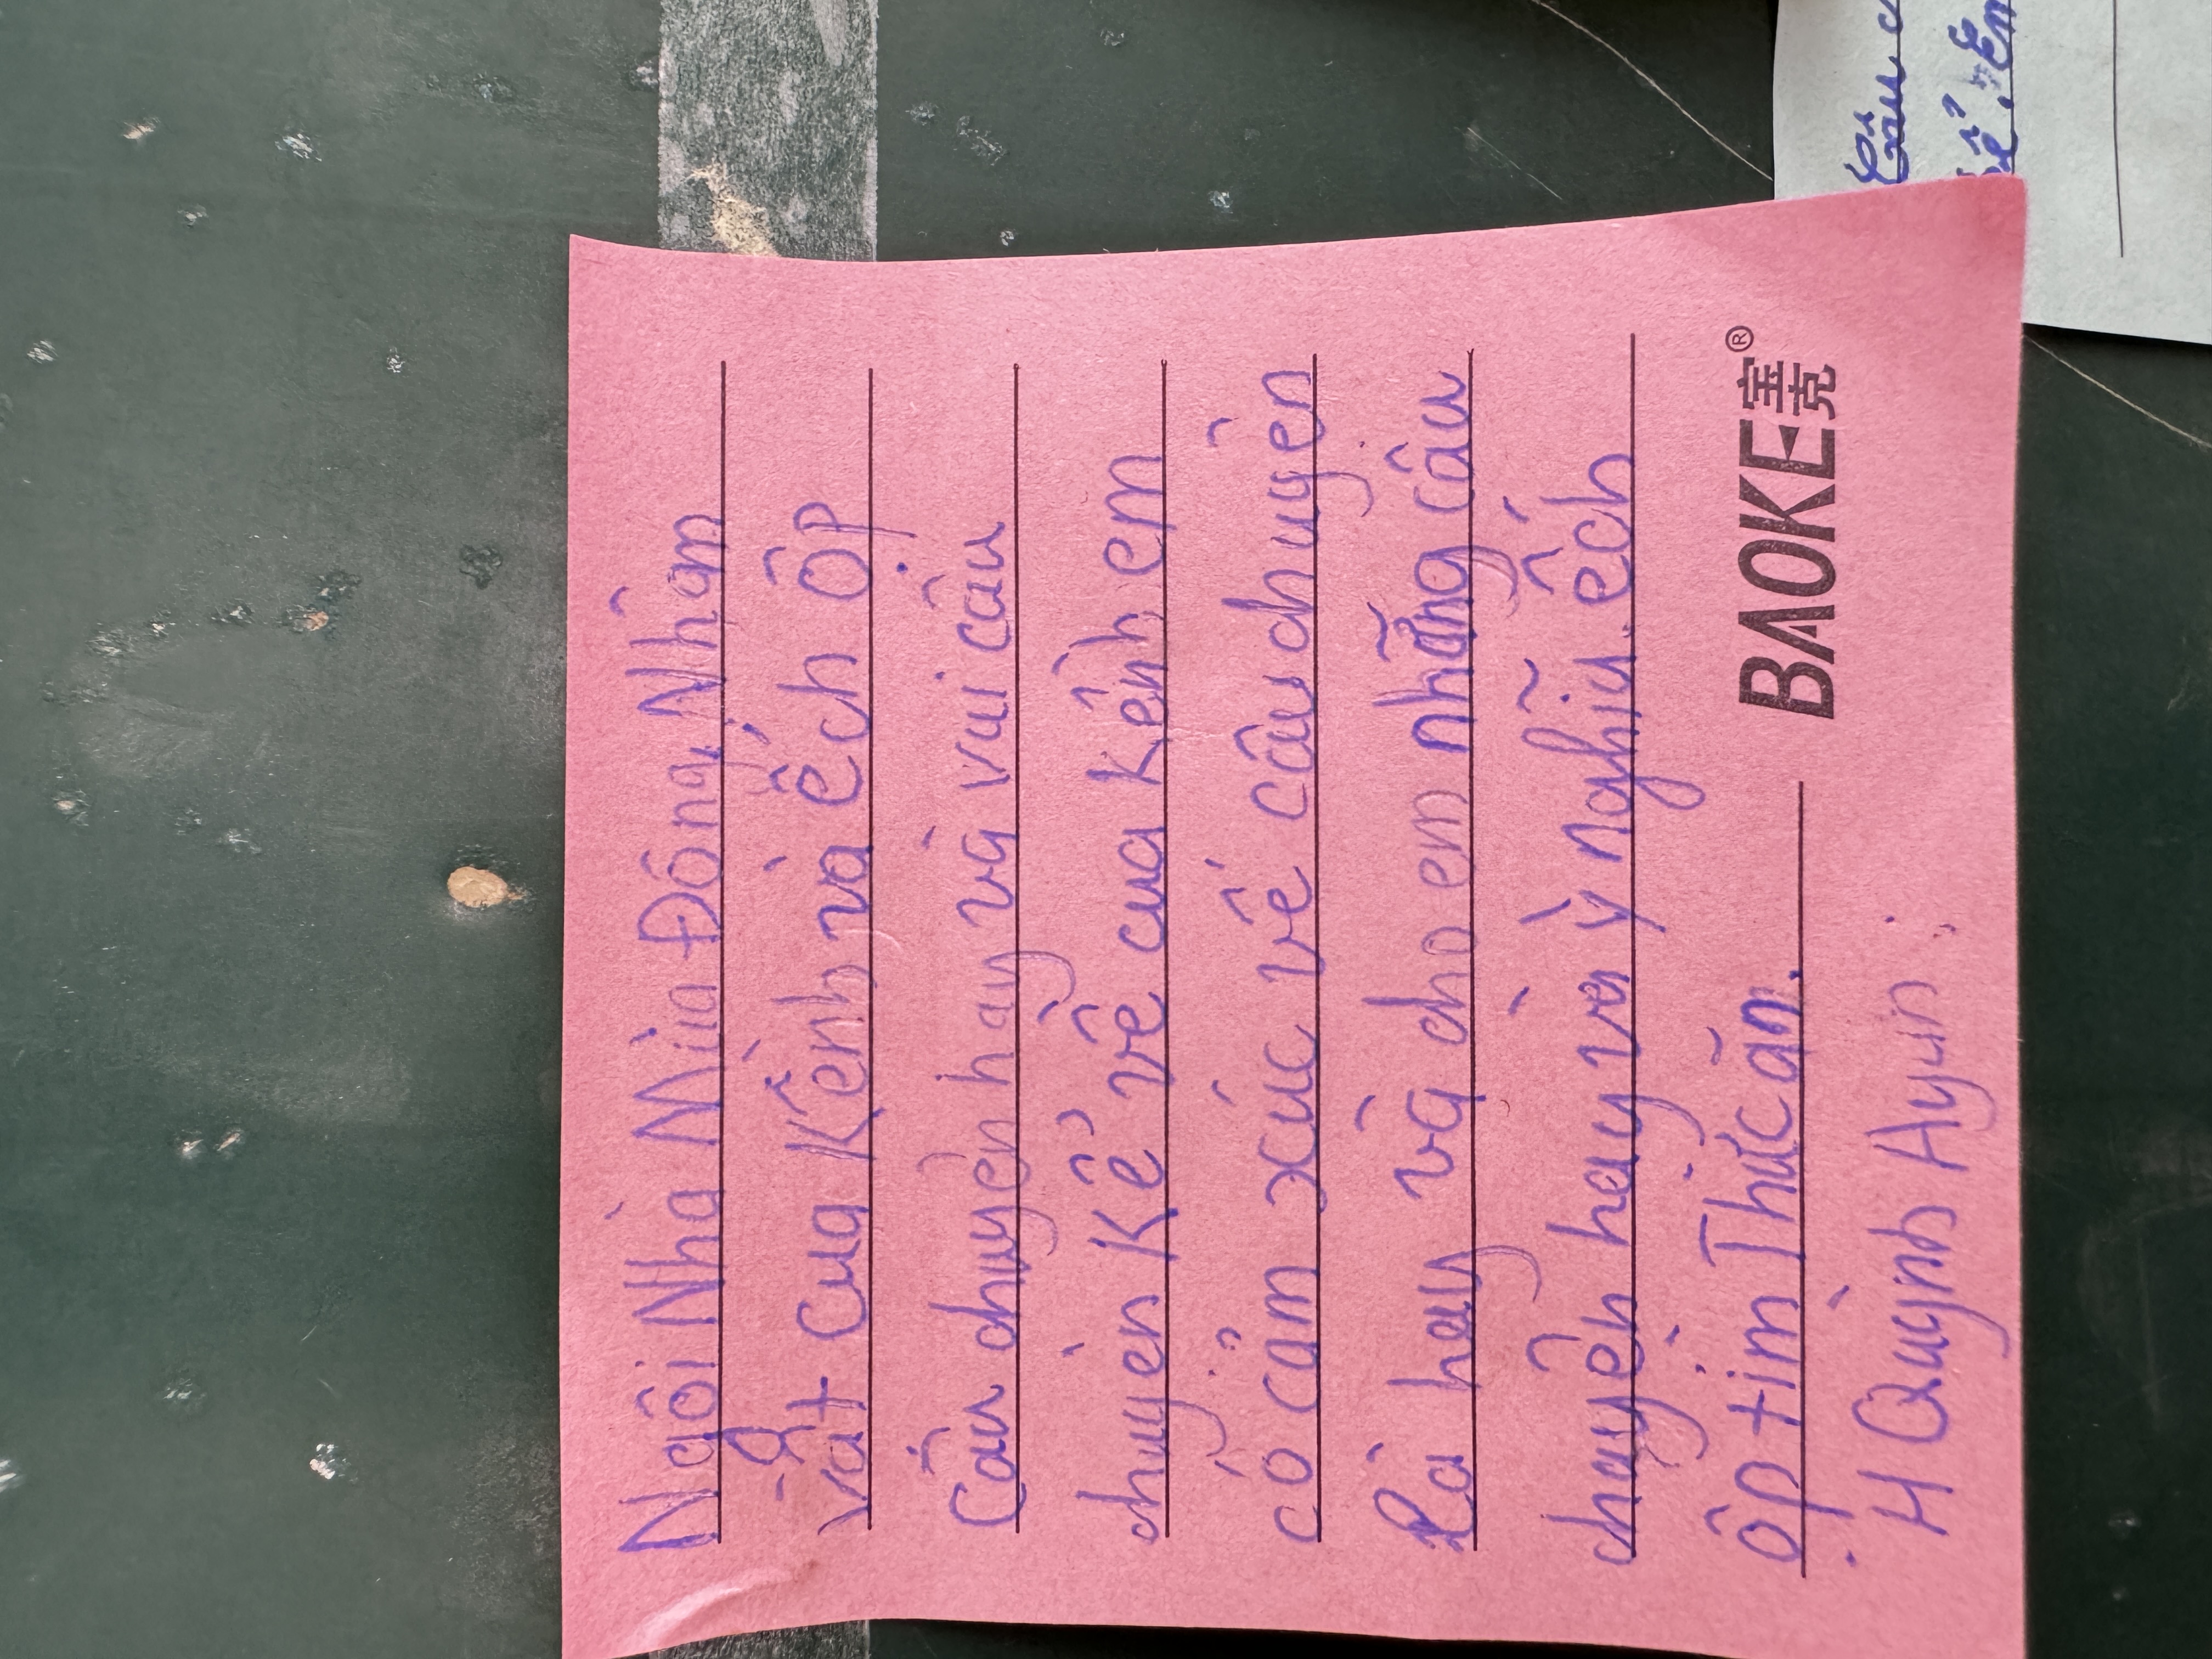 Ngôi Nhà Mùa Đông, Nhâm
vật cua Kềnh và ếch ộp
Câu chuyện hay và vui câu
chuyện Kể về cua Kềnh em
có cảm xúc về câu chuyện
là hay và cho em những câu
chuyện hay và ý nghĩa. ếch
ộp tìm Thức ăn.
H Quỳnh Ayun.
BAOKE宝克®
câu c
kể. Em